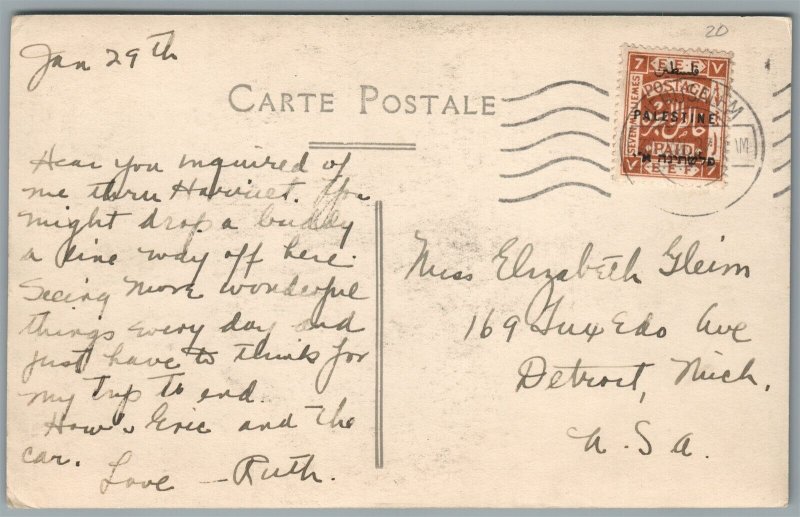 20
Jan 29th
CARTE POSTALE
Hear you inquired of
me thru Harriet. You
might drop a buddy
a line way off here.
Seeing more wonderful
things every day and
just have to think for
my trip to end.
How's Eric and the
car.
Love — Ruth.
7 E.E.F. ٧
POSTAGE
PALESTINE
SEVEN MILLIEMES
PAID
٧ E.E.F. 7
Miss Elizabeth Gleim
169 Tuxedo Ave
Detroit, Mich.
U.S.A.